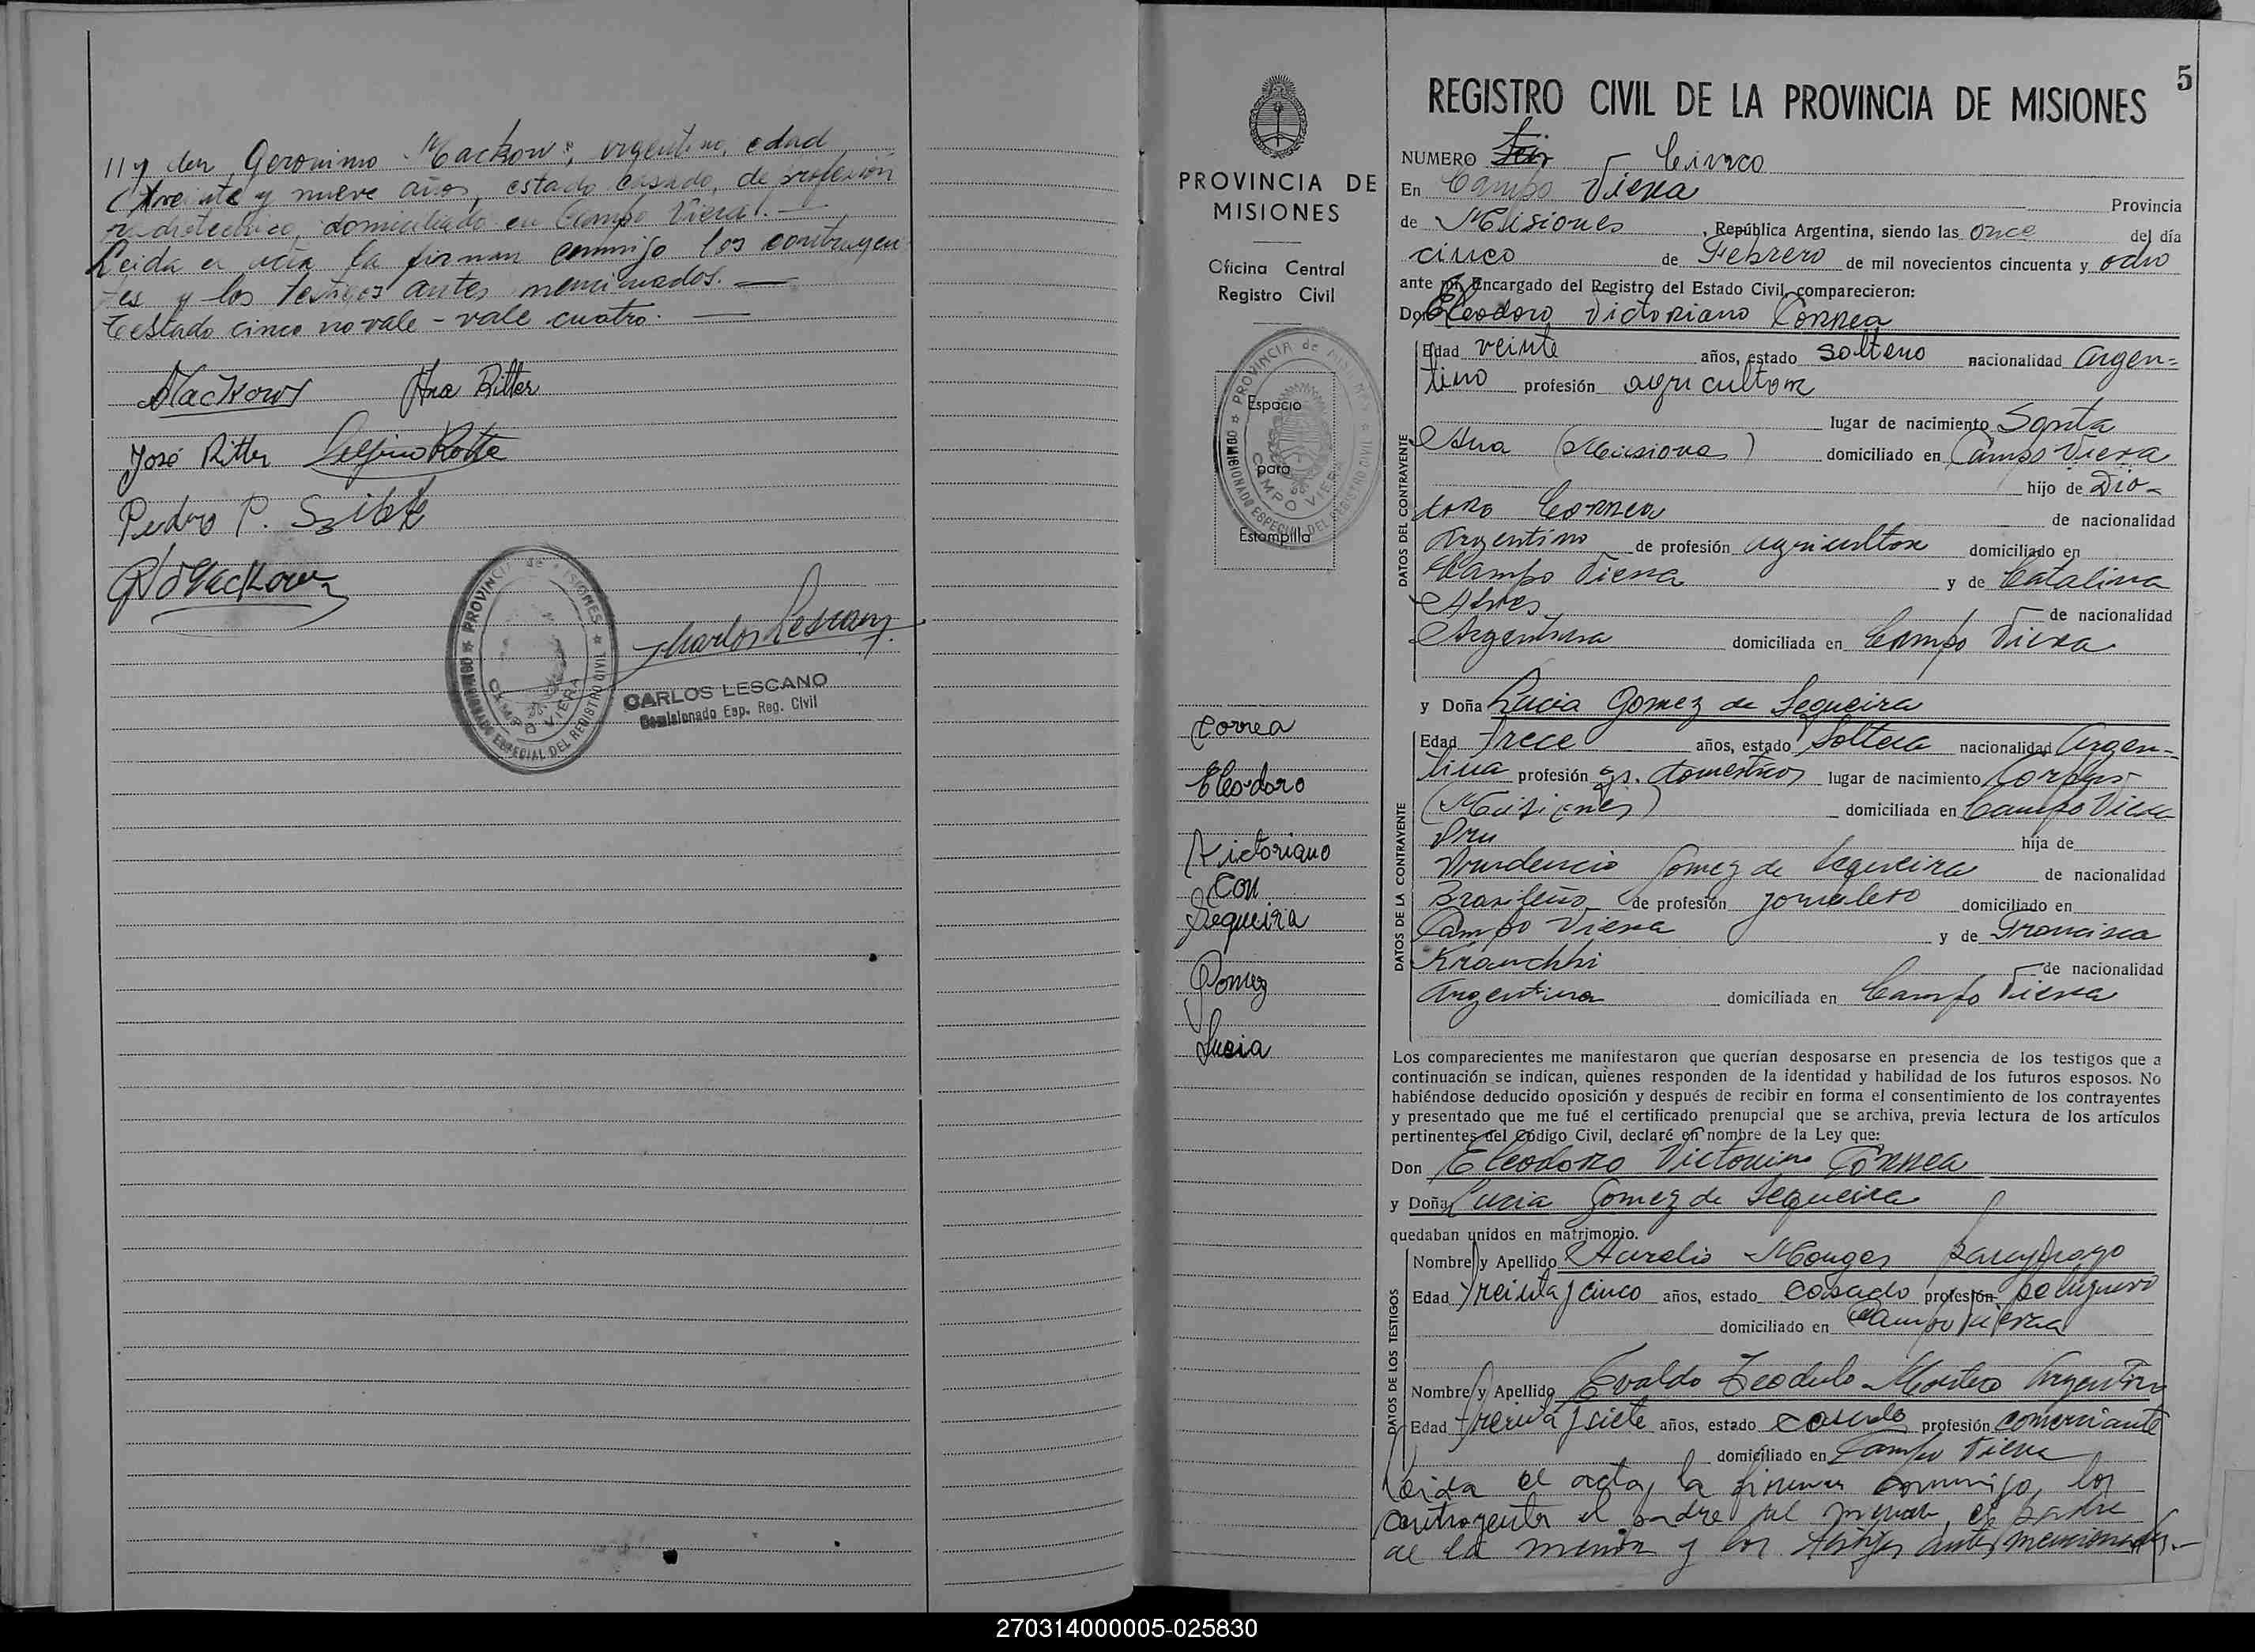 y don Geronimo Mackow, argentino, edad
treinta y nueve años, estado casado, de profesión
radiotecnico, domiciliado en Campo Viera. —
Leida el acta la firman conmigo los contrayen
tes y los testigos antes mencionados. —
Testado cinco no vale - vale cuatro. —
Mackow Ana Ritter
José Ritter
Pedro P.
G Mackow
PROVINCIA de MISIONES
COMISIONADO ESPECIAL DEL REGISTRO CIVIL
CAMPO VIERA
Carlos Lescano
CARLOS LESCANO
Comisionado Esp. Reg. Civil
PROVINCIA DE
MISIONES
Oficina Central
Registro Civil
PROVINCIA de MISIONES
COMISIONADO ESPECIAL DEL REGISTRO CIVIL
CAMPO VIERA
Espacio
para
Estampilla
Correa
Eleodoro
Victoriano
con
Sequeira
Gomez
Lucia
5
REGISTRO CIVIL DE LA PROVINCIA DE MISIONES
NUMERO Cinco
En Campo Viera Provincia
de Misiones, República Argentina, siendo las once del día
cinco de Febrero de mil novecientos cincuenta y ocho
ante mí, Encargado del Registro del Estado Civil, comparecieron:
Don Eleodoro Victoriano Correa
DATOS DEL CONTRAYENTE
Edad veinte años, estado soltero nacionalidad argen=
tino profesión agricultor
lugar de nacimiento Santa
Ana (Misiones) domiciliado en Campo Viera
hijo de Dio-
doro Correa de nacionalidad
Argentino de profesión agricultor domiciliado en
Campo Viera y de Catalina
Alves de nacionalidad
Argentina domiciliada en Campo Viera
y Doña Lucia Gomez de Sequeira
DATOS DE LA CONTRAYENTE
Edad trece años, estado soltera nacionalidad Argen-
tina profesión qs. domesticos lugar de nacimiento Corpus
(Misiones) domiciliada en Campo Viera
Pru hija de
Prudencio Gomez de Sequeira de nacionalidad
Brasileño de profesión jornalero domiciliado en
Campo Viera y de Francisca
Kranchhi de nacionalidad
Argentina domiciliada en Campo Viera
Los comparecientes me manifestaron que querían desposarse en presencia de los testigos que a
continuación se indican, quienes responden de la identidad y habilidad de los futuros esposos. No
habiéndose deducido oposición y después de recibir en forma el consentimiento de los contrayentes
y presentado que me fué el certificado prenupcial que se archiva, previa lectura de los artículos
pertinentes del Código Civil, declaré en nombre de la Ley que:
Don Eleodoro Victoriano Correa
y Doña Lucia Gomez de Sequeira
quedaban unidos en matrimonio.
DATOS DE LOS TESTIGOS
Nombre y Apellido Aurelio Monges paraguayo
Edad treinta y cinco años, estado casado profesión peluquero
domiciliado en Campo Viera
Nombre y Apellido Evaldo Teodulo Argentino
Edad treinta y siete años, estado casado profesión comerciante
domiciliado en Campo Viera
Leida el acta, la firman conmigo, los
contrayentes el padre del menor, el padre
de la menor y los testigos antes mencionados.-
270314000005-025830